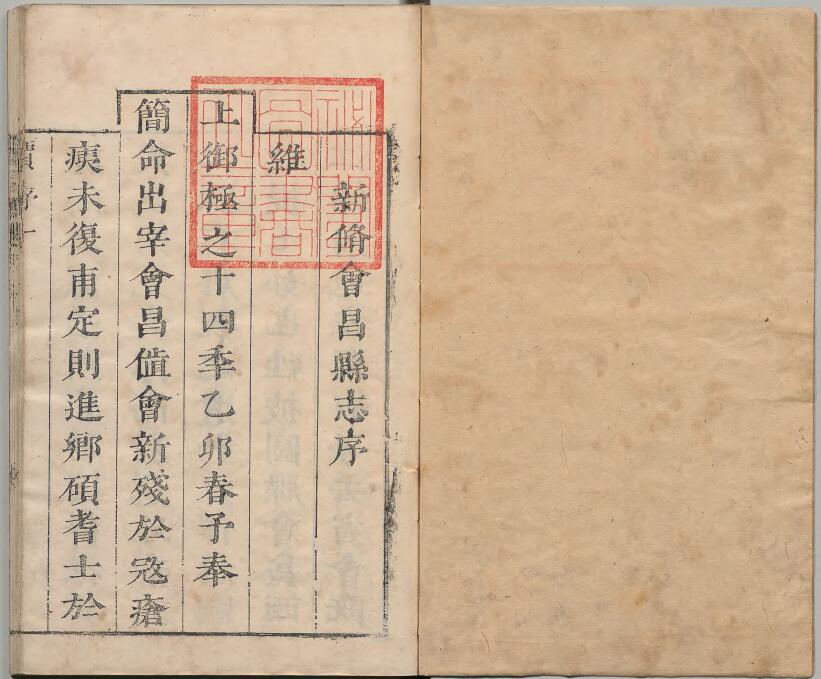 新脩會昌縣志序
維
上御極之十四秊乙卯春予奉
簡命出宰會昌值會新殘於寇瘡
痍未復甫定則進鄉碩耆士於
序一